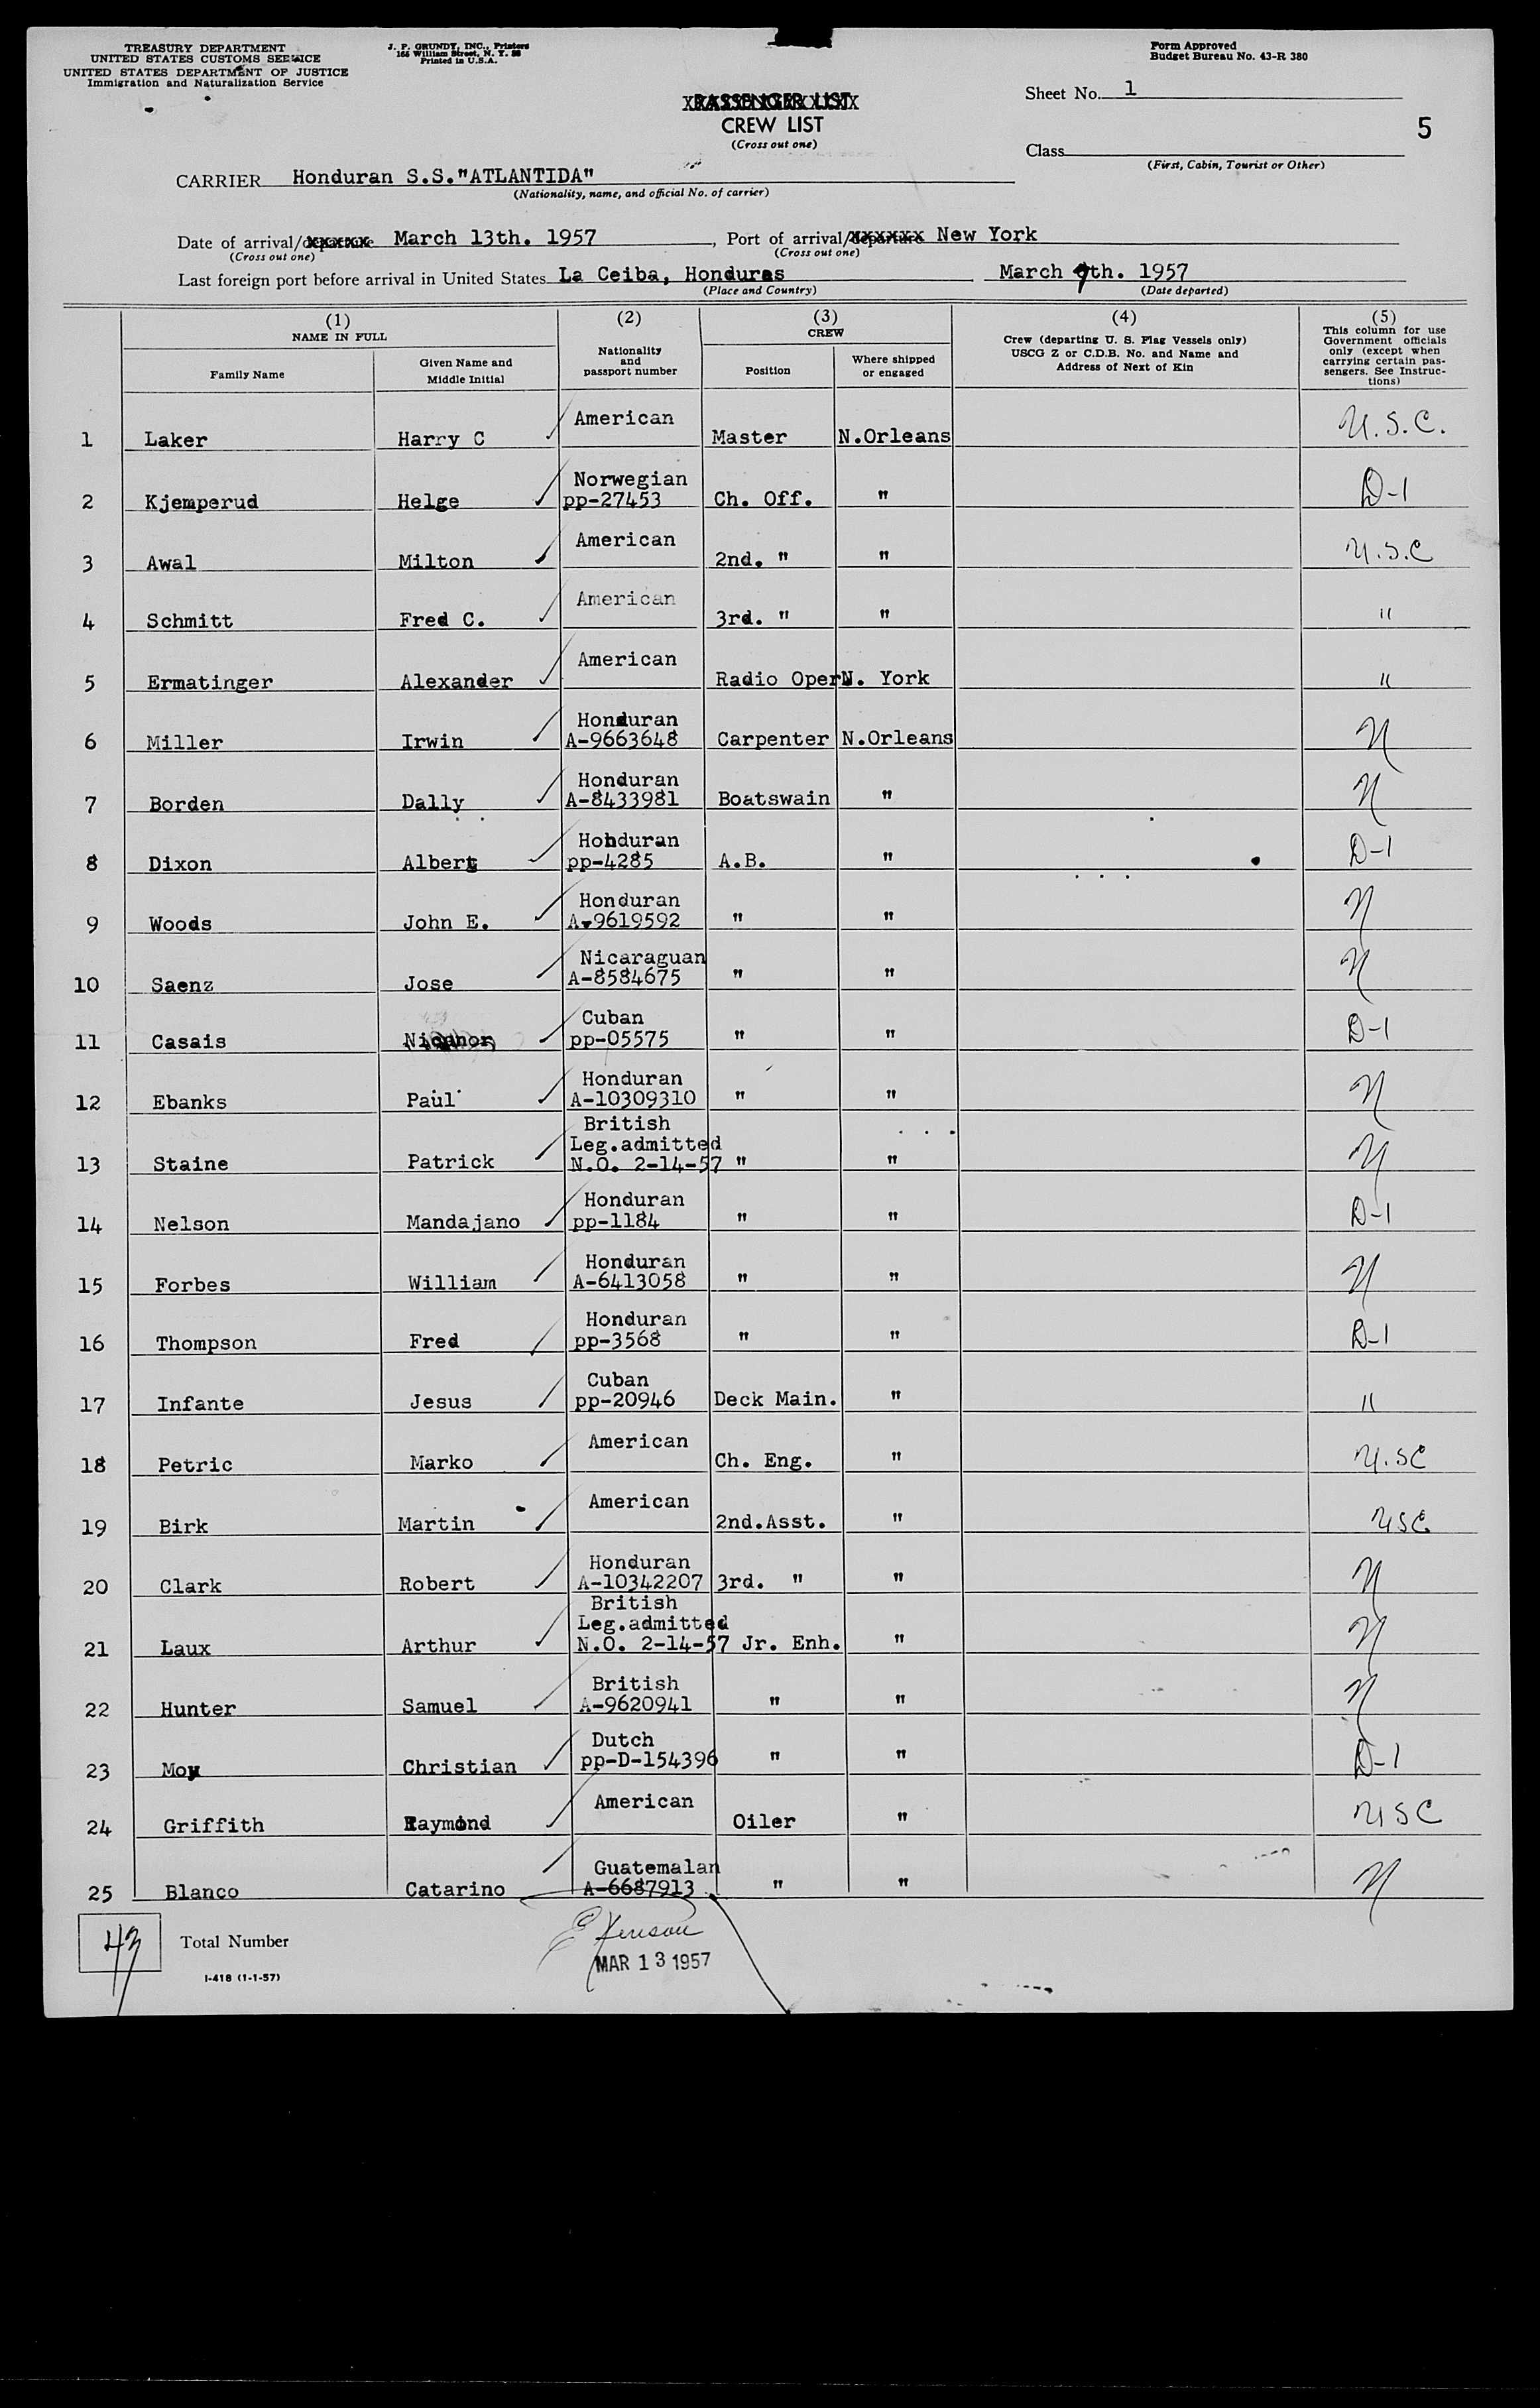 TREASURY DEPARTMENT
UNITED STATES CUSTOMS SERVICE
UNITED STATES DEPARTMENT OF JUSTICE
Immigration and Naturalization Service
J. P. GRUNDY, INC., Printers
165 William Street, N. Y. 38
Printed in U.S.A.
Form Approved
Budget Bureau No. 43-R 380
PASSENGER LIST
CREW LIST
(Cross out one)
Sheet No. 1
5
Class
(First, Cabin, Tourist or Other)
CARRIER Honduran S.S."ATLANTIDA"
(Nationality, name, and official No. of carrier)
Date of arrival/departure March 13th. 1957, Port of arrival/departure New York
(Cross out one) (Cross out one)
Last foreign port before arrival in United States La Ceiba, Honduras March 9th. 1957
(Place and Country) (Date departed)
(1) NAME IN FULL
Family Name
Given Name and Middle Initial
(2)
Nationality and passport number
(3) CREW
Position
Where shipped or engaged
(4)
Crew (departing U. S. Flag Vessels only)
USCG Z or C.D.B. No. and Name and
Address of Next of Kin
(5)
This column for use
Government officials
only (except when
carrying certain pas-
sengers. See Instruc-
tions)
1 Laker Harry C American Master N.Orleans U.S.C.
2 Kjemperud Helge Norwegian pp-27453 Ch. Off. " D-1
3 Awal Milton American 2nd. " " U.S.C
4 Schmitt Fred C. American 3rd. " " "
5 Ermatinger Alexander American Radio Oper N. York "
6 Miller Irwin Honduran A-9663648 Carpenter N.Orleans N
7 Borden Dally Honduran A-8433981 Boatswain " N
8 Dixon Albert Honduran pp-4285 A.B. " D-1
9 Woods John E. Honduran A-9619592 " " N
10 Saenz Jose Nicaraguan A-8584675 " " N
11 Casais Nicanor Cuban pp-05575 " " D-1
12 Ebanks Paul Honduran A-10309310 " " N
13 Staine Patrick British Leg.admitted N.O. 2-14-57 " " N
14 Nelson Mandajano Honduran pp-1184 " " D-1
15 Forbes William Honduran A-6413058 " " N
16 Thompson Fred Honduran pp-3568 " " D-1
17 Infante Jesus Cuban pp-20946 Deck Main. " "
18 Petric Marko American Ch. Eng. " U.SC
19 Birk Martin American 2nd.Asst. " USC
20 Clark Robert Honduran A-10342207 3rd. " " N
21 Laux Arthur British Leg.admitted N.O. 2-14-57 Jr. Enh. " N
22 Hunter Samuel British A-9620941 " " N
23 Moy Christian Dutch pp-D-154396 " " D-1
24 Griffith Raymond American Oiler " USC
25 Blanco Catarino Guatemalan A-6687913 " " N
43 Total Number
I-418 (1-1-57)
MAR 13 1957